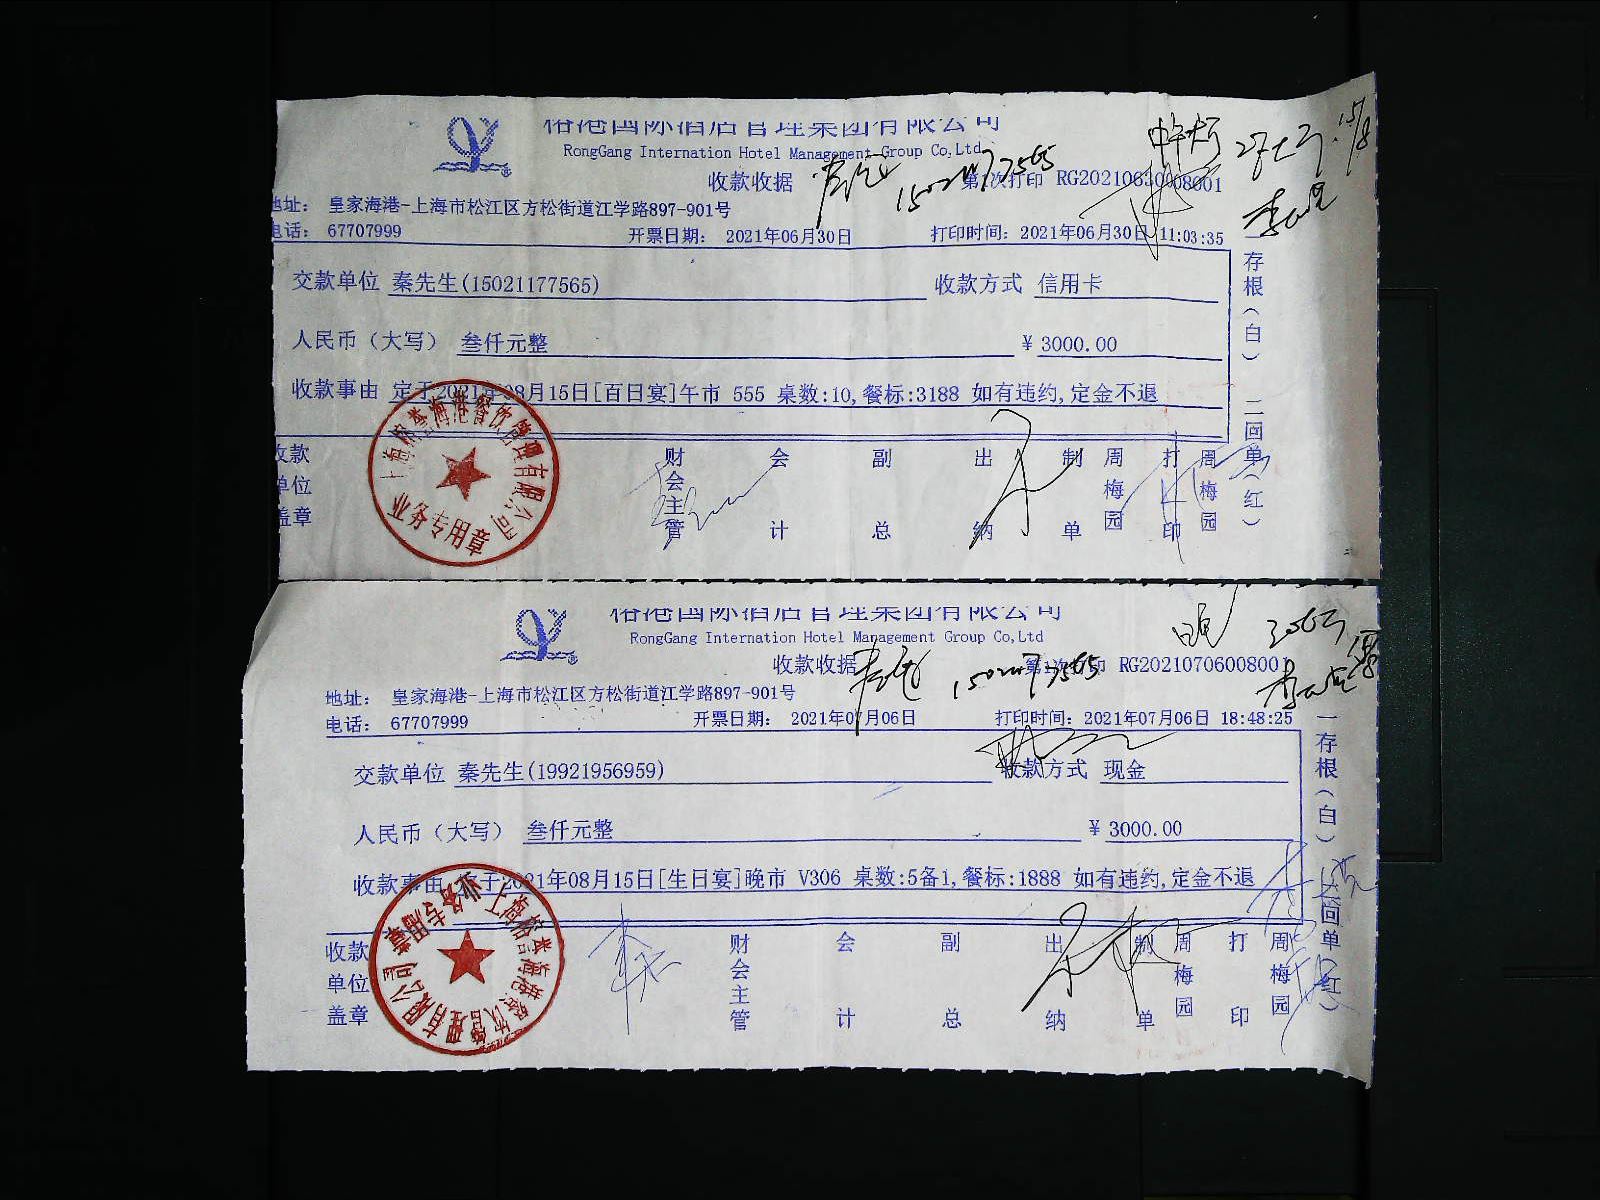 榕港国际酒店管理集团有限公司
RongGang Internation Hotel Management Group Co,Ltd
收款收据 第1次打印 RG20210630008001
15021177565
地址: 皇家海港-上海市松江区方松街道江学路897-901号
电话: 67707999 开票日期: 2021年06月30日 打印时间: 2021年06月30日 11:03:35
交款单位 秦先生(15021177565) 收款方式 信用卡
人民币（大写） 叁仟元整 ¥ 3000.00
收款事由 定于2021年08月15日[百日宴]午市 555 桌数:10,餐标:3188 如有违约,定金不退
收款单位盖章 财会主管 会计 副总 出纳 制单 周梅园 打印 周梅园
一存根（白） 二回单（红）
上海榕港海港餐饮管理有限公司
业务专用章
榕港国际酒店管理集团有限公司
RongGang Internation Hotel Management Group Co,Ltd
收款收据 第1次打印 RG20210706008001
15021177565
地址: 皇家海港-上海市松江区方松街道江学路897-901号
电话: 67707999 开票日期: 2021年07月06日 打印时间: 2021年07月06日 18:48:25
交款单位 秦先生(19921956959) 收款方式 现金
人民币（大写） 叁仟元整 ¥ 3000.00
收款事由 定于2021年08月15日[生日宴]晚市 V306 桌数:5备1,餐标:1888 如有违约,定金不退
收款单位盖章 财会主管 会计 副总 出纳 制单 周梅园 打印 周梅园
一存根（白） 二回单（红）
业务专用章